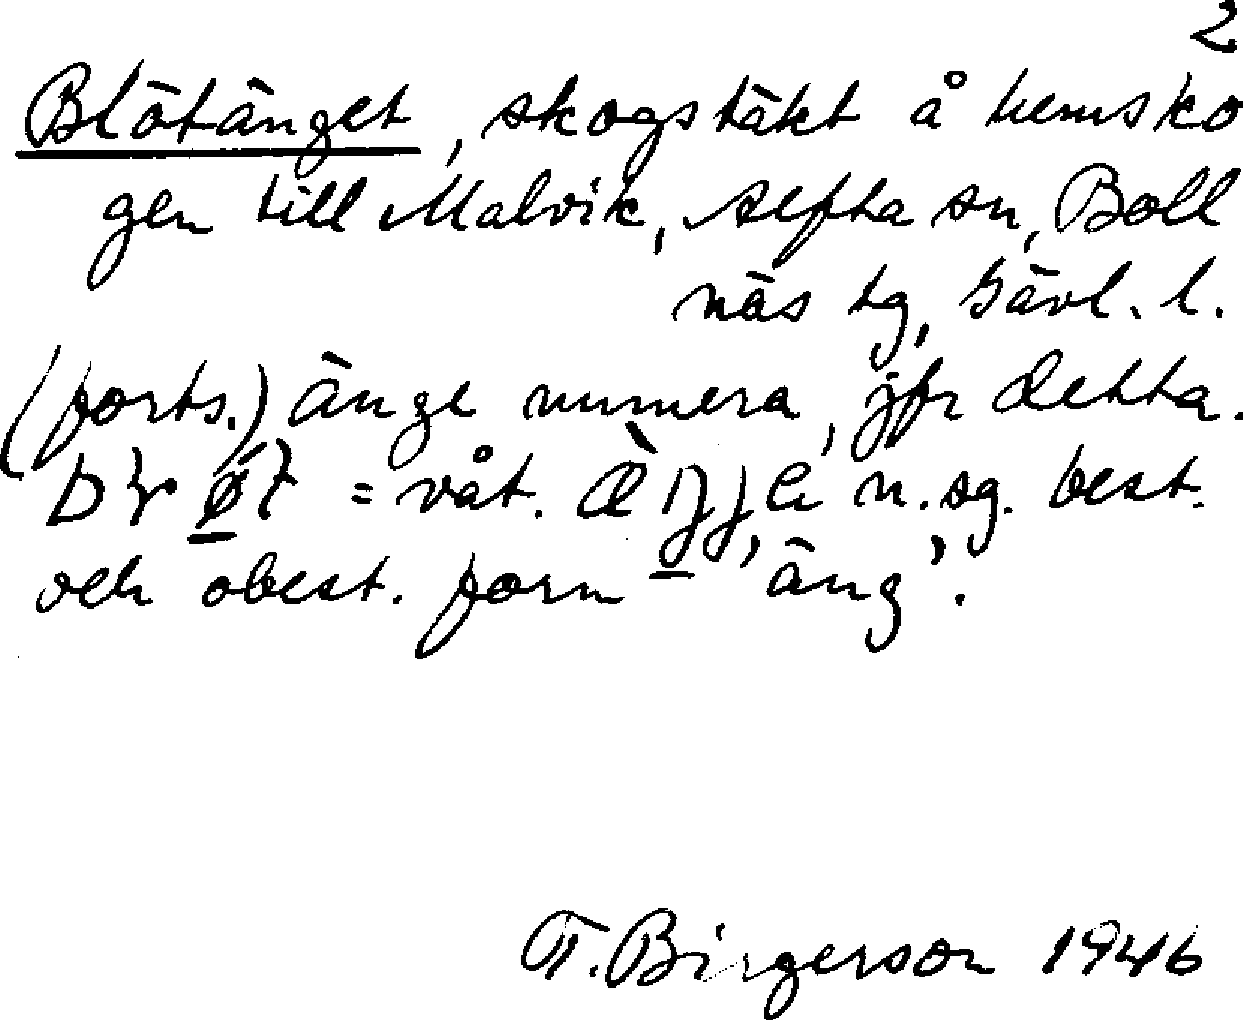 2
Blötänget, skogstäkt å hemsko
gen till Malvik, Alfta sn, Boll
näs tg, Gävl. l.
(forts.) änge numera, jfr detta.
= våt. n. sg. best.
och obest. form 'äng'.
T. Birgerson 1946